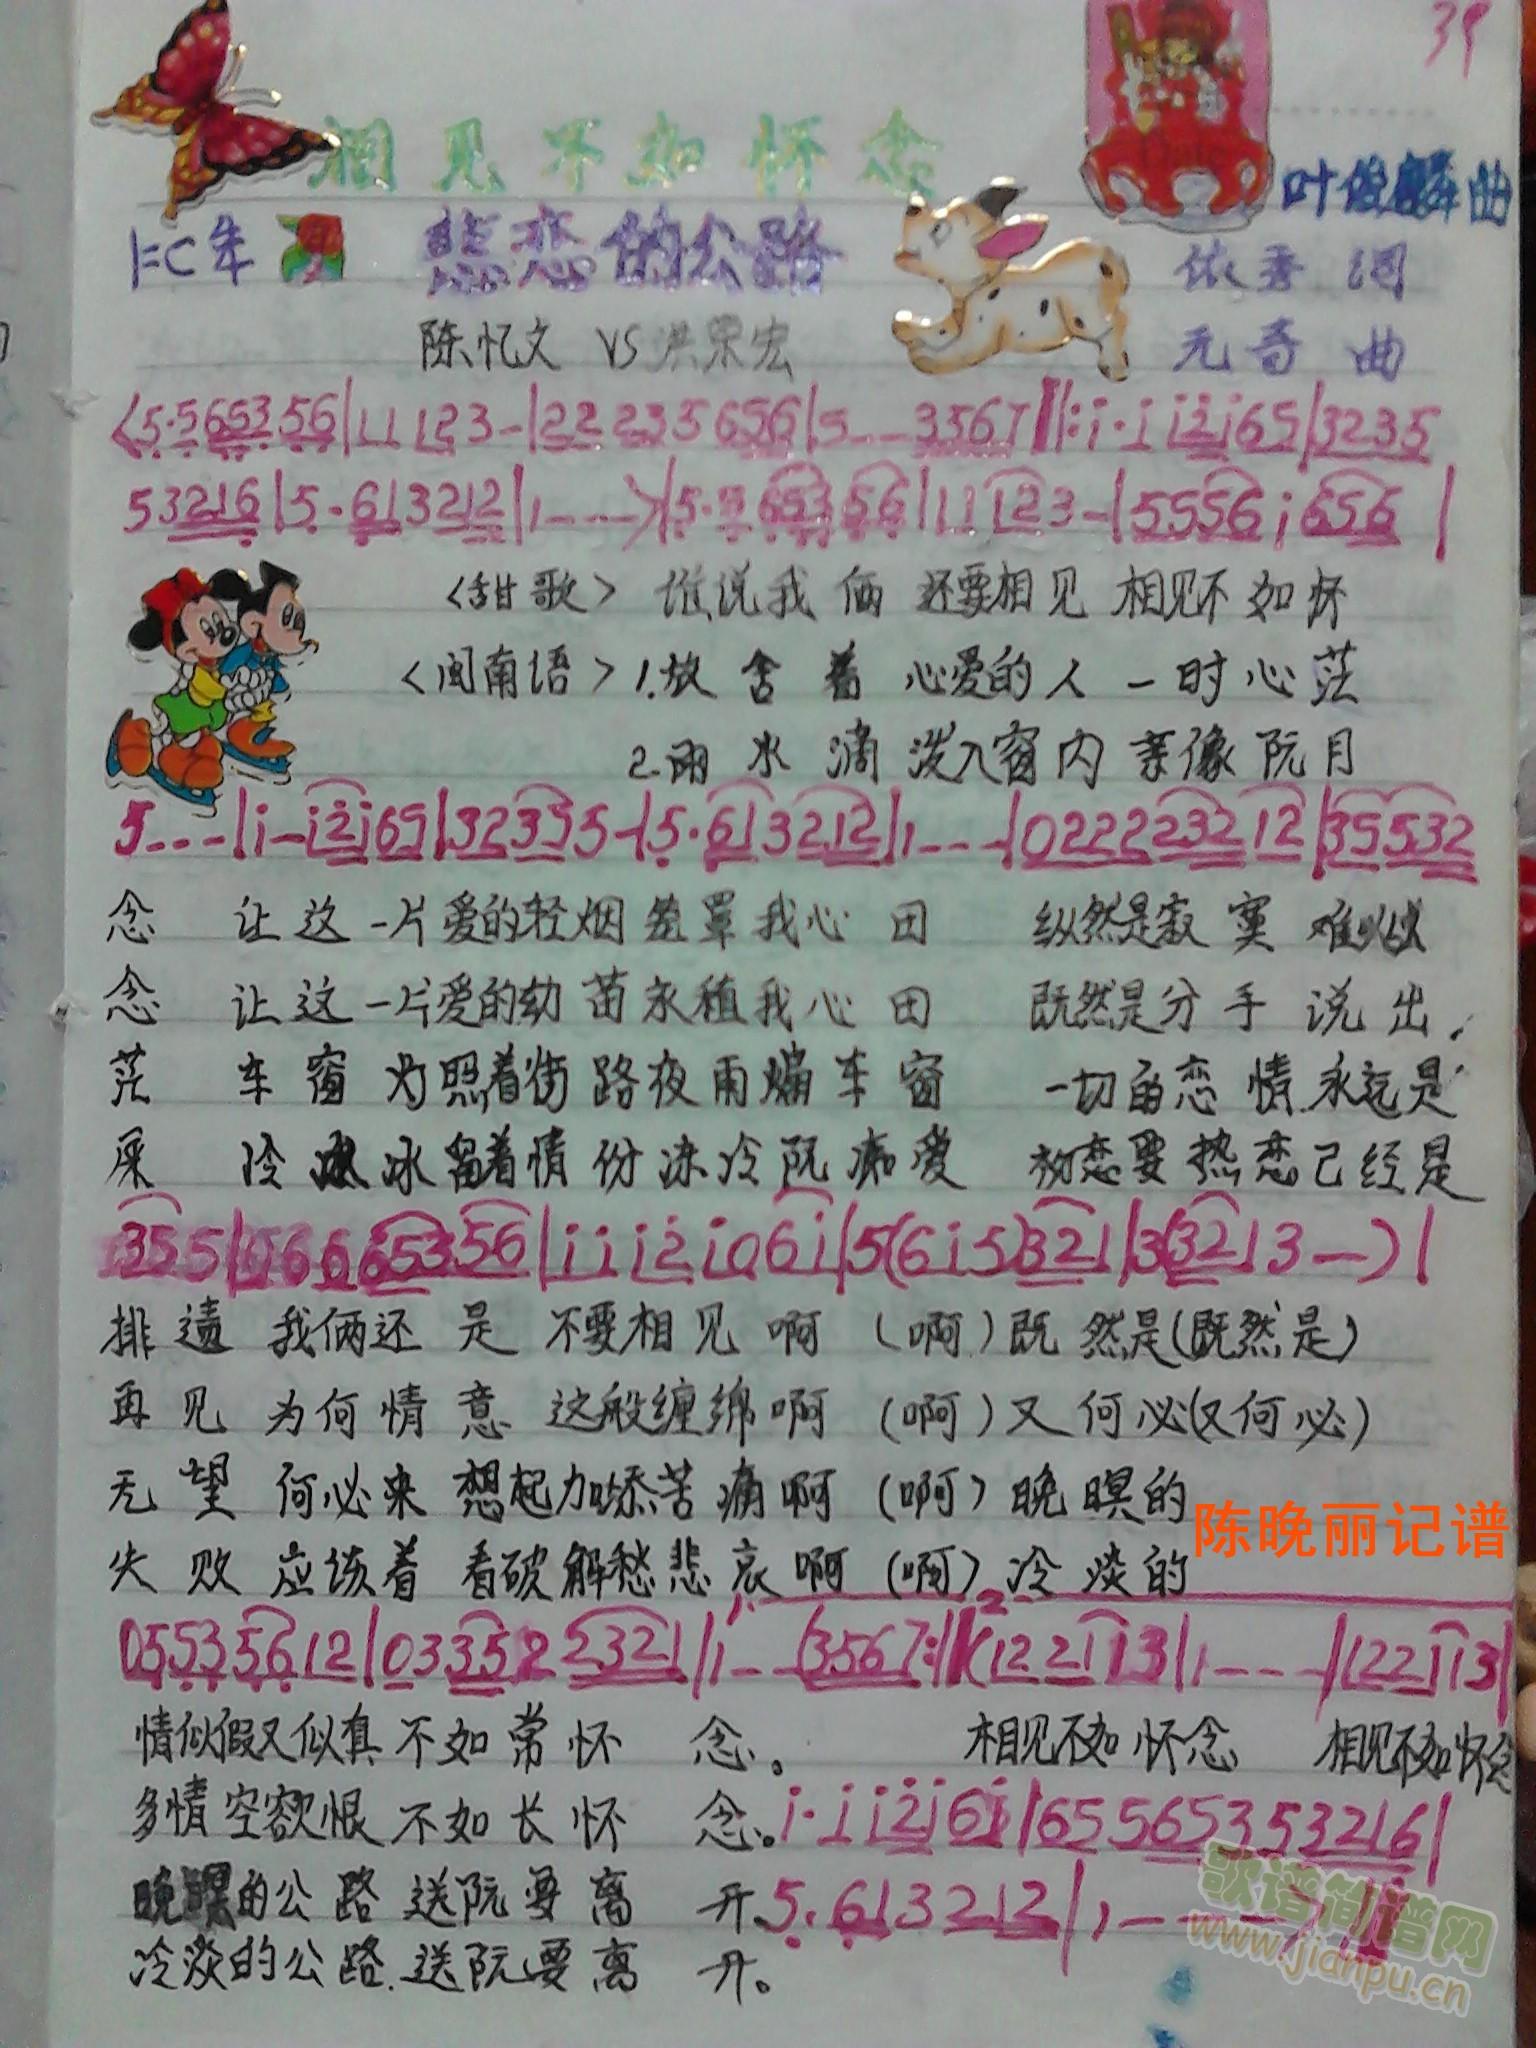 39
相见不如怀念
叶俊麟曲
1=C
悲恋的公路
依香 词
陈忆文 VS 洪荣宏
元奇 曲
5·5 653 56|11 123-|22 2235 656|5--- 3567‖:i·i i2i65|3235
53216|5·613212|1---->|5·5 653 56|11 123-|5556i656|
〈甜歌〉谁说我俩 还要相见 相见不如怀
〈闽南语〉1.放舍着心爱的人一时心茫
2.雨水滴泼入窗内亲像阮目
5---|i-i2i65|32355-|5·613212|1----|0222232 12|355532
念 让这一片爱的轻烟笼罩我心田 纵然是寂寞难以
念 让这一片爱的幼苗永植我心田 既然是分手说出
茫 车窗灯照着街路夜雨 车窗 一切的恋情永远是
屎 冷冰冰留着情份冻冷阮痴爱 初恋要热恋已经是
355|666i5356|iii2i06i|5(6i5)321|3(3213-)|
排遗 我俩还是 不要相见啊(啊)既然是(既然是)
再见 为何情意 这般缠绵啊(啊)又何必(又何必)
无望 何必来想起加添苦痛啊(啊)晚暝的
陈晚丽记谱
失败 应该着看破解愁悲哀啊(啊)冷淡的
1.
2
05535612|033352 2321|1--(3567:‖(1221i3|1----|1221i3|
情似假又似真不如常怀念。 相见不如怀念 相见不如怀念
多情空欲恨不如长怀念。i·ii2i6i|65565353216|
晚暝的公路送阮要离开.5.613212|1---
冷淡的公路.送阮要离开。
歌谱简谱网
www.jianpu.cn